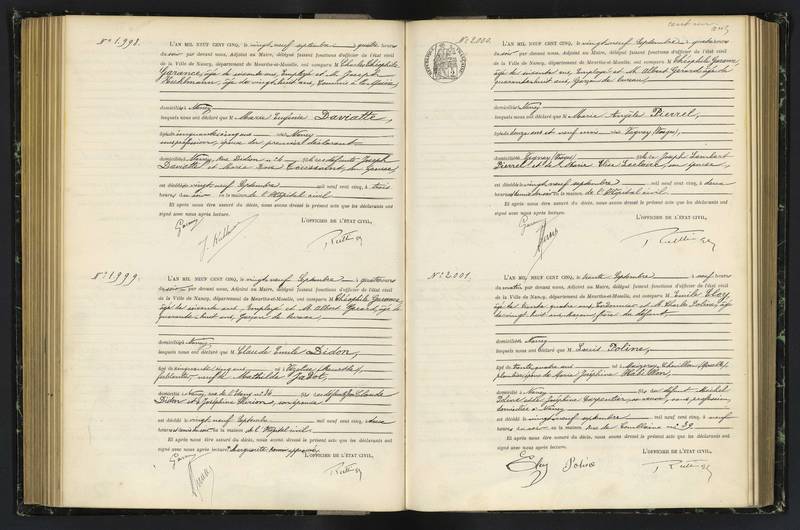 N° 1.998.
L'AN MIL NEUF CENT CINQ, le vingt neuf septembre à quatre heures
du soir par devant nous, Adjoint au Maire, délégué faisant fonctions d'officier de l'état civil
de la Ville de Nancy, département de Meurthe-et-Moselle, ont comparu M Charles Théophile
Garance, âgé de soixante ans, Employé et M. Joseph
âgé de vingt huit ans, Commis à la Mairie,
domiciliés à Nancy
lesquels nous ont déclaré que M Marie Eugénie Daviatte,
âgée de cinquante cinq ans née à Nancy
sans profession, épouse du premier déclarant
domiciliée à Nancy, Rue Didion n° 26 fille de défunts Joseph
Daviatte et Marie Rose Toussaint, son épouse
est décédée le vingt neuf Septembre mil neuf cent cinq, à trois
heures du soir en la maison de l'Hôpital civil
Et après nous être assuré du décès, nous avons dressé le présent acte que les déclarants ont
signé avec nous après lecture.
L'OFFICIER DE L'ÉTAT CIVIL,
N° 1999.
L'AN MIL NEUF CENT CINQ, le vingt neuf Septembre à quatre heures
du soir par devant nous, Adjoint au Maire, délégué faisant fonctions d'officier de l'état civil
de la Ville de Nancy, département de Meurthe-et-Moselle, ont comparu M Théophile Garance,
âgé de soixante ans, Employé et M. Albert Gérard, âgé de
quarante huit ans, Garçon de bureau,
domiciliés à Nancy
lesquels nous ont déclaré que M Claude Emile Didon,
âgé de cinquante cinq ans né à Vézelise (Meurthe)
veuf de Mathilde Jadot,
domicilié à Nancy, rue de l'Etang n° 36 fils de défunts Claude
Didon et Joséphine son épouse
est décédé le vingt neuf Septembre mil neuf cent cinq, à deux
heures du soir en la maison de l'Hôpital civil
Et après nous être assuré du décès, nous avons dressé le présent acte que les déclarants ont
signé avec nous après lecture.
L'OFFICIER DE L'ÉTAT CIVIL,
cent un
N° 2000.
L'AN MIL NEUF CENT CINQ, le vingt neuf Septembre à quatre heures
du soir par devant nous, Adjoint au Maire, délégué faisant fonctions d'officier de l'état civil
de la Ville de Nancy, département de Meurthe-et-Moselle, ont comparu M Théophile Garance,
âgé de soixante ans, Employé et M. Albert Gérard, âgé de
quarante huit ans, Garçon de bureau,
domiciliés à Nancy
lesquels nous ont déclaré que M Marie Angèle Pierrel,
âgée de douze ans et neuf mois née à Vagney (Vosges),
domiciliée à Vagney (Vosges) fille de Joseph Lambert
Pierrel et de Marie Elise Leclerc, son épouse
est décédée le vingt neuf septembre mil neuf cent cinq, à deux
heures du soir en la maison de l'Hôpital civil
Et après nous être assuré du décès, nous avons dressé le présent acte que les déclarants ont
signé avec nous après lecture.
L'OFFICIER DE L'ÉTAT CIVIL,
N° 2001.
L'AN MIL NEUF CENT CINQ, le trente Septembre à neuf heures
du matin par devant nous, Adjoint au Maire, délégué faisant fonctions d'officier de l'état civil
de la Ville de Nancy, département de Meurthe-et-Moselle, ont comparu M Emile Eloy
âgé de trente quatre ans, Cordonnier et M. Charles Poline, âgé
de vingt huit ans, frère du défunt,
domiciliés à Nancy
lesquels nous ont déclaré que M Louis Poline,
âgé de trente quatre ans né à
époux de Marie Joséphine
domicilié à Nancy fils de défunt Michel
Poline et de Joséphine Carpentier, sa veuve, sans profession,
domiciliée à Nancy
est décédé le vingt neuf septembre mil neuf cent cinq, à neuf
heures du soir en la maison, rue de n° 39
Et après nous être assuré du décès, nous avons dressé le présent acte que les déclarants ont
signé avec nous après lecture.
L'OFFICIER DE L'ÉTAT CIVIL,
Eloy Poline